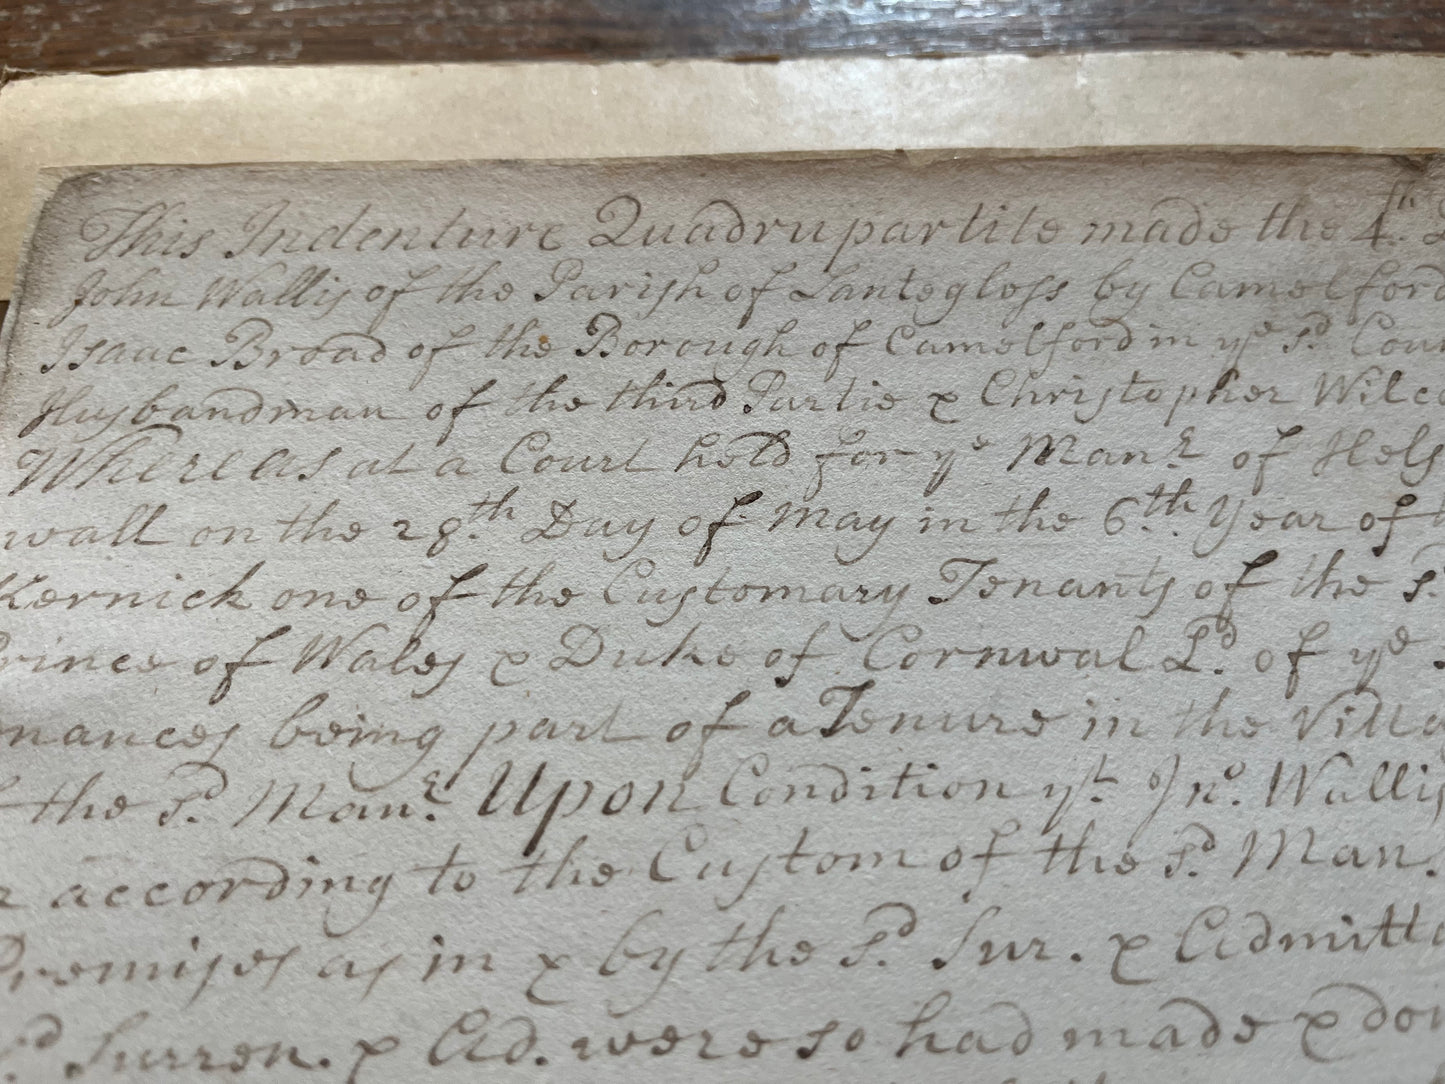 This Indenture Quadrupartite made the 4th
John Wallis of the Parish of Lantegloss by Camelford
Isaac Broad of the Borough of Camelford in ye sd. Coun
Husbandman of the third Partie & Christopher Wilco
Whereas at a Court held for ye Manr. of Hels
wall on the 28th Day of May in the 6th Year of
Kernick one of the Customary Tenants of the sd
Prince of Wales & Duke of Cornwal Ld. of ye
nances being part of a Tenure in the Villa
the sd. Manr. Upon Condition yt Jno. Wallis
r according to the Custom of the sd Man.
Premises as in & by the sd. Sur. & Admitta
sd Surren. & Ad. were so had made & don